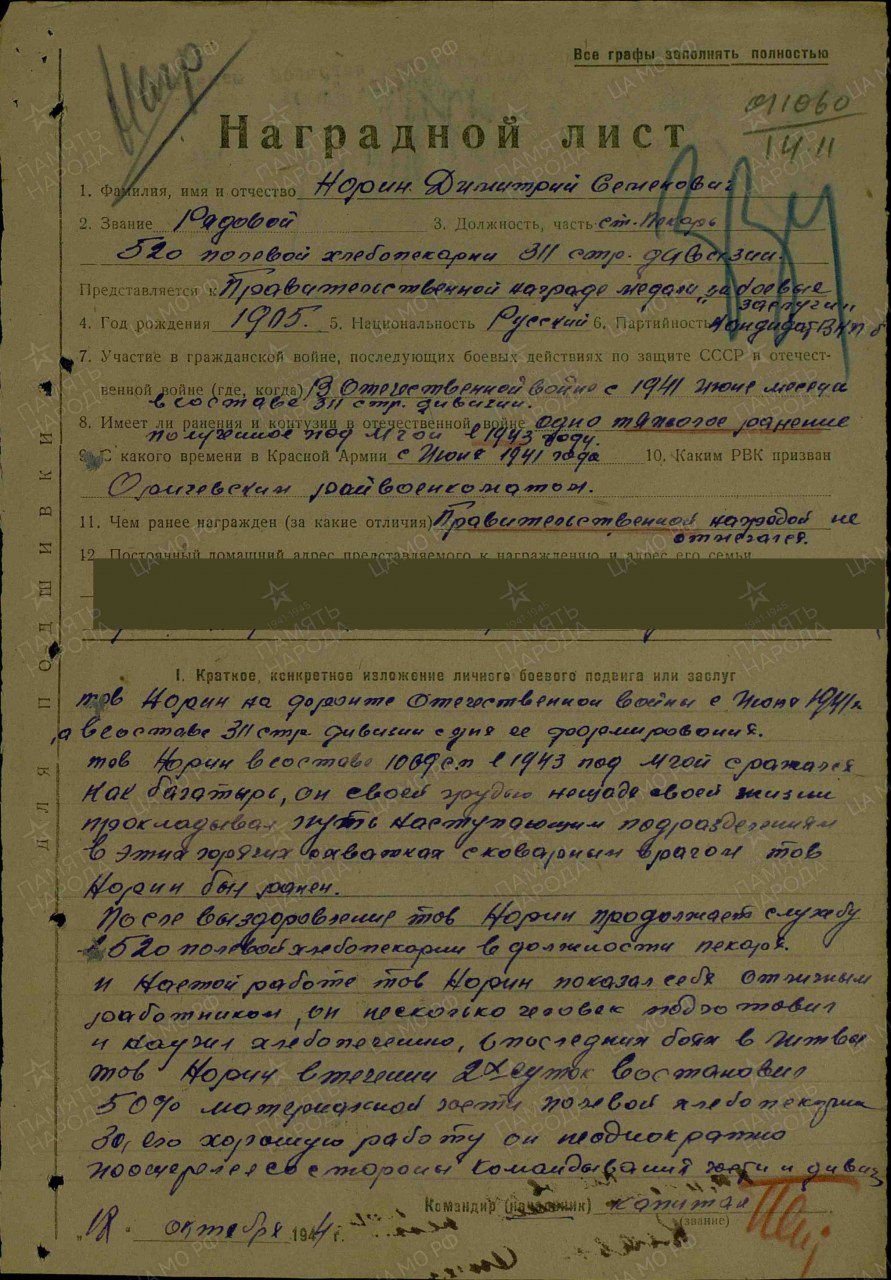 Все графы заполнять полностью
Нагр
011060
14.11
Наградной лист
1. Фамилия, имя и отчество Норин Димитрий Семенович
2. Звание Рядовой 3. Должность, часть ст. Пекарь
520 полевой хлебопекарни 311 стр. дивизии.
Представляется к Правительственной награде медали „за боевые
заслуги"
4. Год рождения 1905. 5. Национальность Русский 6. Партийность Кандидат ВКП б
7. Участие в гражданской войне, последующих боевых действиях по защите СССР и отечест-
венной войне (где, когда) В Отечественной войне с 1941 июне месеца
в составе 311 стр. дивизии.
8. Имеет ли ранения и контузии в отечественной войне одно тяжолое ранение
полученное под Мгой в 1943 году.
9. С какого времени в Красной Армии с Июня 1941 года 10. Каким РВК призван
Оричевским райвоенкоматом.
11. Чем ранее награжден (за какие отличия) Правительственной наградой не
отмечался.
12. Постоянный домашний адрес представляемого к награждению и адрес его семьи
ДЛЯ ПОДШИВКИ
I. Краткое, конкретное изложение личного боевого подвига или заслуг
тов Норин на фронте Отечественной войны с Июня 1941г
а в составе 311 стр. дивизии с дня ее формирования.
тов Норин в составе в 1943 под Мгой сражался
как багатырь, он своей грудью нещадя своей жизни
прокладывал путь наступающим подразделениям
в этих горячих схватках с коварным врагом тов
Норин был ранен.
После выздоровление тов Норин продолжает службу
в 520 полевой хлебопекарни в должности пекаря.
и на етой работе тов Норин показал себя отличным
работником, он несколько человек подготовил
и научил хлебопечению, в последних боях в Литве
тов Норин в течении 2х суток востановил
50% материальной части полевой хлебопекарни
За его хорошую работу он неоднократно
поощрелся со стороны командывания части и дивиз
Командир (начальник) капитан
(звание)
„18" октября 1944 г.
ПАМЯТЬ НАРОДА
ЦАМО.РФ